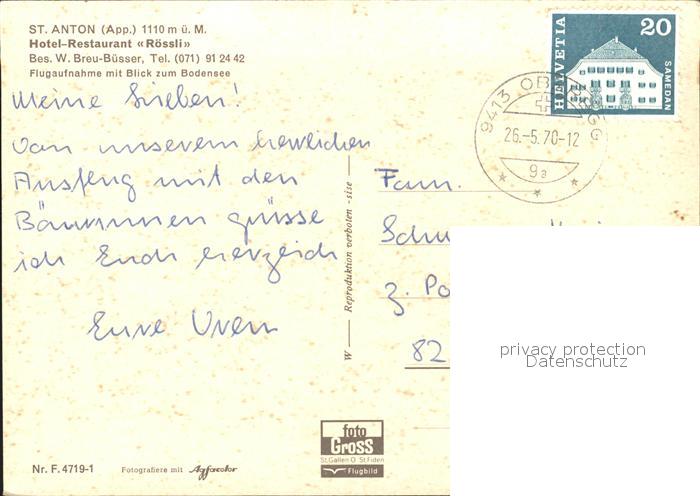 ST. ANTON (App.) 1110 m ü. M.
Hotel-Restaurant «Rössli»
Bes. W. Breu-Büsser, Tel. (071) 91 24 42
Flugaufnahme mit Blick zum Bodensee
Meine Lieben!
Von unserem herrlichen
Ausflug mit den
Bäuerinnen grüsse
ich Euch herzlich
Eure Vren
W — Reproduktion verboten - sise —
HELVETIA
20
SAMEDAN
9413 OBEREGG
26.-5.70-12
9a
Fam.
Schu
z. Po
82
privacy protection
Datenschutz
foto
Gross
St.Gallen O St.Fiden
Flugbild
Nr. F. 4719-1
Fotografiere mit Agfacolor